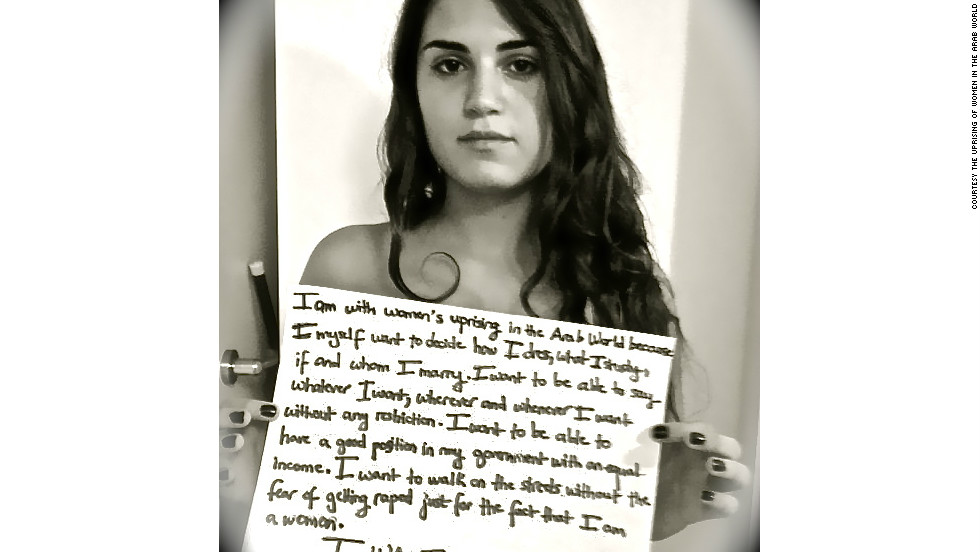 I am with women's uprising in the Arab World because
I myself want to decide how I dres, what I study,
if and whom I marry. I want to be able to say
whatever I want, wherever and whenever I want
without any restriction. I want to be able to
have a good position in my government with an equal
income. I want to walk on the streets without the
fear of getting raped just for the fact that I am
a woman.
COURTESY THE UPRISING OF WOMEN IN THE ARAB WORLD